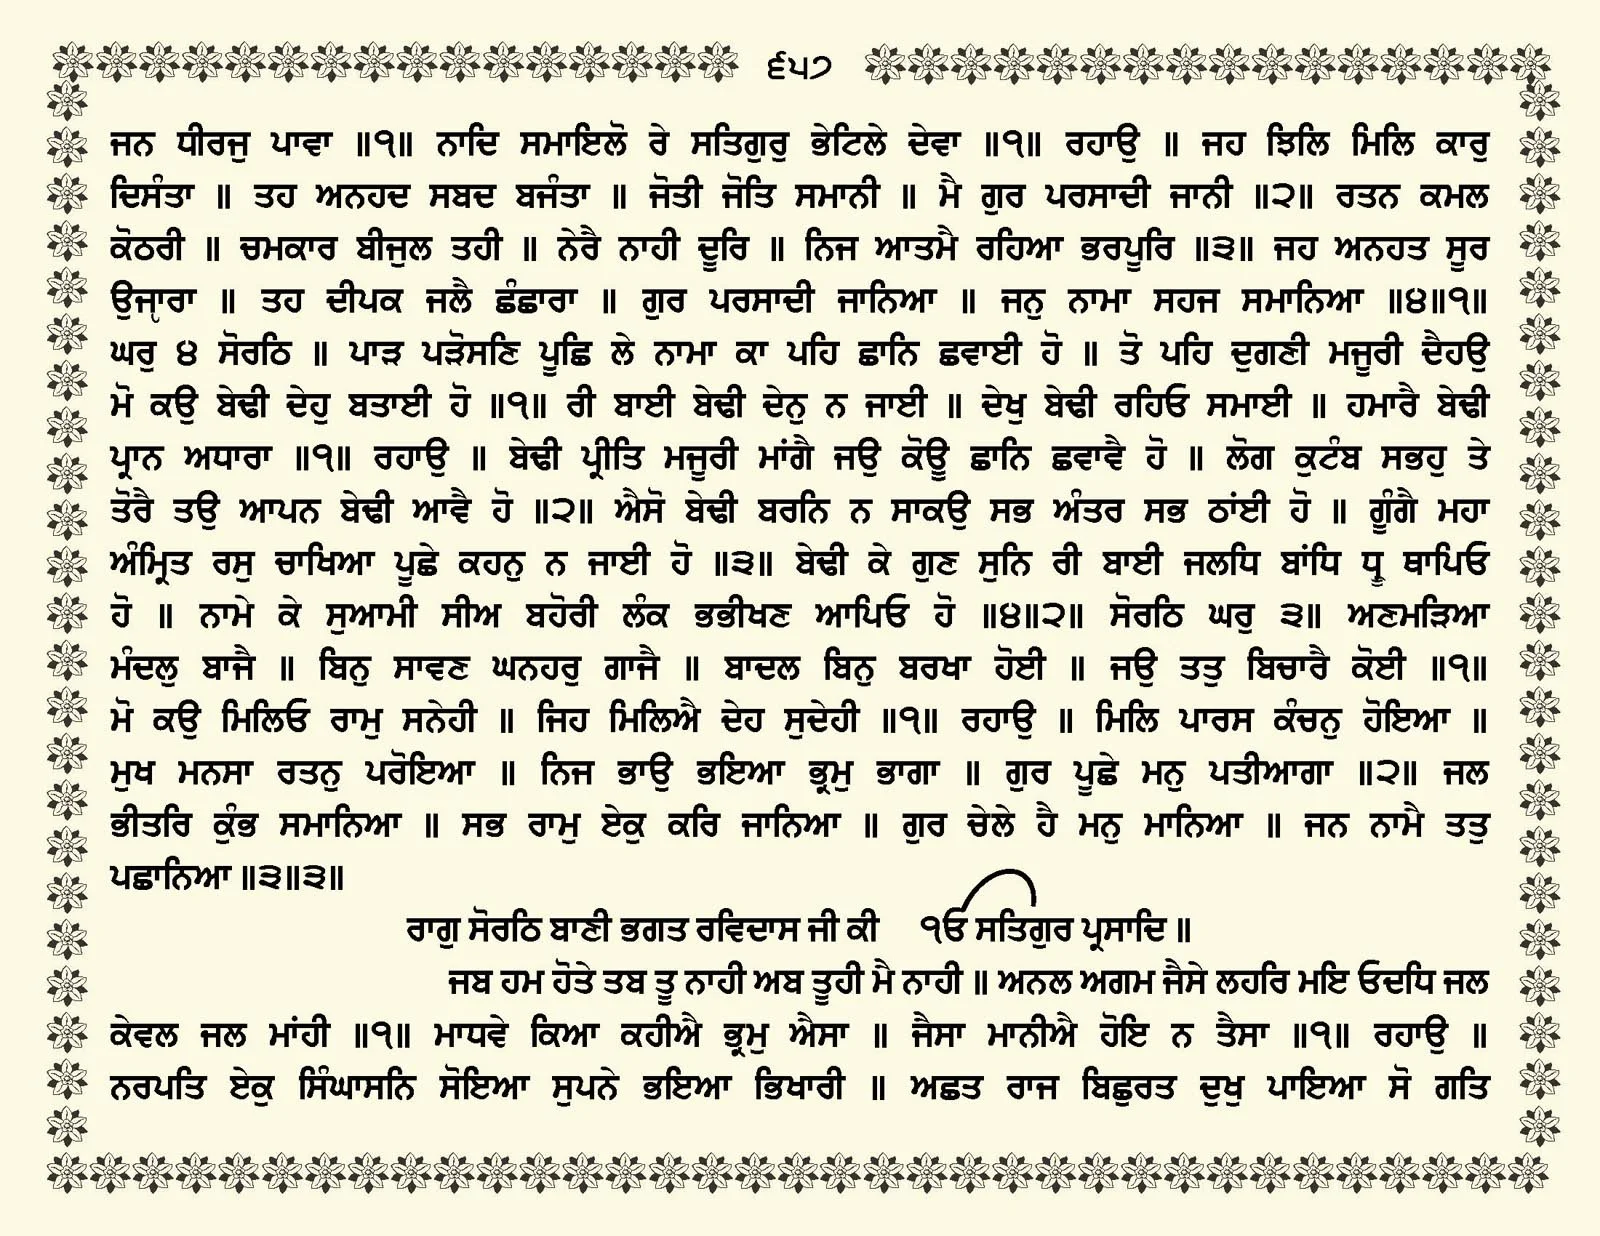 ੬੫੭
ਜਨ ਧੀਰਜੁ ਪਾਵਾ ॥੧॥ ਨਾਦਿ ਸਮਾਇਲੋ ਰੇ ਸਤਿਗੁਰੁ ਭੇਟਿਲੇ ਦੇਵਾ ॥੧॥ ਰਹਾਉ ॥ ਜਹ ਝਿਲਿ ਮਿਲਿ ਕਾਰੁ
ਦਿਸੰਤਾ ॥ ਤਹ ਅਨਹਦ ਸਬਦ ਬਜੰਤਾ ॥ ਜੋਤੀ ਜੋਤਿ ਸਮਾਨੀ ॥ ਮੈ ਗੁਰ ਪਰਸਾਦੀ ਜਾਨੀ ॥੨॥ ਰਤਨ ਕਮਲ
ਕੋਠਰੀ ॥ ਚਮਕਾਰ ਬੀਜੁਲ ਤਹੀ ॥ ਨੇਰੈ ਨਾਹੀ ਦੂਰਿ ॥ ਨਿਜ ਆਤਮੈ ਰਹਿਆ ਭਰਪੂਰਿ ॥੩॥ ਜਹ ਅਨਹਤ ਸੂਰ
ਉਜ੍ਯਾਰਾ ॥ ਤਹ ਦੀਪਕ ਜਲੈ ਛੰਛਾਰਾ ॥ ਗੁਰ ਪਰਸਾਦੀ ਜਾਨਿਆ ॥ ਜਨੁ ਨਾਮਾ ਸਹਜ ਸਮਾਨਿਆ ॥੪॥੧॥
ਘਰੁ ੪ ਸੋਰਠਿ ॥ ਪਾੜ ਪੜੋਸਣਿ ਪੂਛਿ ਲੇ ਨਾਮਾ ਕਾ ਪਹਿ ਛਾਨਿ ਛਵਾਈ ਹੋ ॥ ਤੋ ਪਹਿ ਦੁਗਣੀ ਮਜੂਰੀ ਦੈਹਉ
ਮੋ ਕਉ ਬੇਢੀ ਦੇਹੁ ਬਤਾਈ ਹੋ ॥੧॥ ਰੀ ਬਾਈ ਬੇਢੀ ਦੇਨੁ ਨ ਜਾਈ ॥ ਦੇਖੁ ਬੇਢੀ ਰਹਿਓ ਸਮਾਈ ॥ ਹਮਾਰੈ ਬੇਢੀ
ਪ੍ਰਾਨ ਅਧਾਰਾ ॥੧॥ ਰਹਾਉ ॥ ਬੇਢੀ ਪ੍ਰੀਤਿ ਮਜੂਰੀ ਮਾਂਗੈ ਜਉ ਕੋਊ ਛਾਨਿ ਛਵਾਵੈ ਹੋ ॥ ਲੋਗ ਕੁਟੰਬ ਸਭਹੁ ਤੇ
ਤੋਰੈ ਤਉ ਆਪਨ ਬੇਢੀ ਆਵੈ ਹੋ ॥੨॥ ਐਸੋ ਬੇਢੀ ਬਰਨਿ ਨ ਸਾਕਉ ਸਭ ਅੰਤਰ ਸਭ ਠਾਂਈ ਹੋ ॥ ਗੂੰਗੈ ਮਹਾ
ਅੰਮ੍ਰਿਤ ਰਸੁ ਚਾਖਿਆ ਪੂਛੇ ਕਹਨੁ ਨ ਜਾਈ ਹੋ ॥੩॥ ਬੇਢੀ ਕੇ ਗੁਣ ਸੁਨਿ ਰੀ ਬਾਈ ਜਲਧਿ ਬਾਂਧਿ ਧ੍ਰੂ ਥਾਪਿਓ
ਹੋ ॥ ਨਾਮੇ ਕੇ ਸੁਆਮੀ ਸੀਅ ਬਹੋਰੀ ਲੰਕ ਭਭੀਖਣ ਆਪਿਓ ਹੋ ॥੪॥੨॥ ਸੋਰਠਿ ਘਰੁ ੩॥ ਅਣਮੜਿਆ
ਮੰਦਲੁ ਬਾਜੈ ॥ ਬਿਨੁ ਸਾਵਣ ਘਨਹਰੁ ਗਾਜੈ ॥ ਬਾਦਲ ਬਿਨੁ ਬਰਖਾ ਹੋਈ ॥ ਜਉ ਤਤੁ ਬਿਚਾਰੈ ਕੋਈ ॥੧॥
ਮੋ ਕਉ ਮਿਲਿਓ ਰਾਮੁ ਸਨੇਹੀ ॥ ਜਿਹ ਮਿਲਿਐ ਦੇਹ ਸੁਦੇਹੀ ॥੧॥ ਰਹਾਉ ॥ ਮਿਲਿ ਪਾਰਸ ਕੰਚਨੁ ਹੋਇਆ ॥
ਮੁਖ ਮਨਸਾ ਰਤਨੁ ਪਰੋਇਆ ॥ ਨਿਜ ਭਾਉ ਭਇਆ ਭ੍ਰਮੁ ਭਾਗਾ ॥ ਗੁਰ ਪੂਛੇ ਮਨੁ ਪਤੀਆਗਾ ॥੨॥ ਜਲ
ਭੀਤਰਿ ਕੁੰਭ ਸਮਾਨਿਆ ॥ ਸਭ ਰਾਮੁ ਏਕੁ ਕਰਿ ਜਾਨਿਆ ॥ ਗੁਰ ਚੇਲੇ ਹੈ ਮਨੁ ਮਾਨਿਆ ॥ ਜਨ ਨਾਮੈ ਤਤੁ
ਪਛਾਨਿਆ ॥੩॥੩॥
ਰਾਗੁ ਸੋਰਠਿ ਬਾਣੀ ਭਗਤ ਰਵਿਦਾਸ ਜੀ ਕੀ ੴ ਸਤਿਗੁਰ ਪ੍ਰਸਾਦਿ ॥
ਜਬ ਹਮ ਹੋਤੇ ਤਬ ਤੂ ਨਾਹੀ ਅਬ ਤੂਹੀ ਮੈ ਨਾਹੀ ॥ ਅਨਲ ਅਗਮ ਜੈਸੇ ਲਹਰਿ ਮਇ ਓਦਧਿ ਜਲ
ਕੇਵਲ ਜਲ ਮਾਂਹੀ ॥੧॥ ਮਾਧਵੇ ਕਿਆ ਕਹੀਐ ਭ੍ਰਮੁ ਐਸਾ ॥ ਜੈਸਾ ਮਾਨੀਐ ਹੋਇ ਨ ਤੈਸਾ ॥੧॥ ਰਹਾਉ ॥
ਨਰਪਤਿ ਏਕੁ ਸਿੰਘਾਸਨਿ ਸੋਇਆ ਸੁਪਨੇ ਭਇਆ ਭਿਖਾਰੀ ॥ ਅਛਤ ਰਾਜ ਬਿਛੁਰਤ ਦੁਖੁ ਪਾਇਆ ਸੋ ਗਤਿ